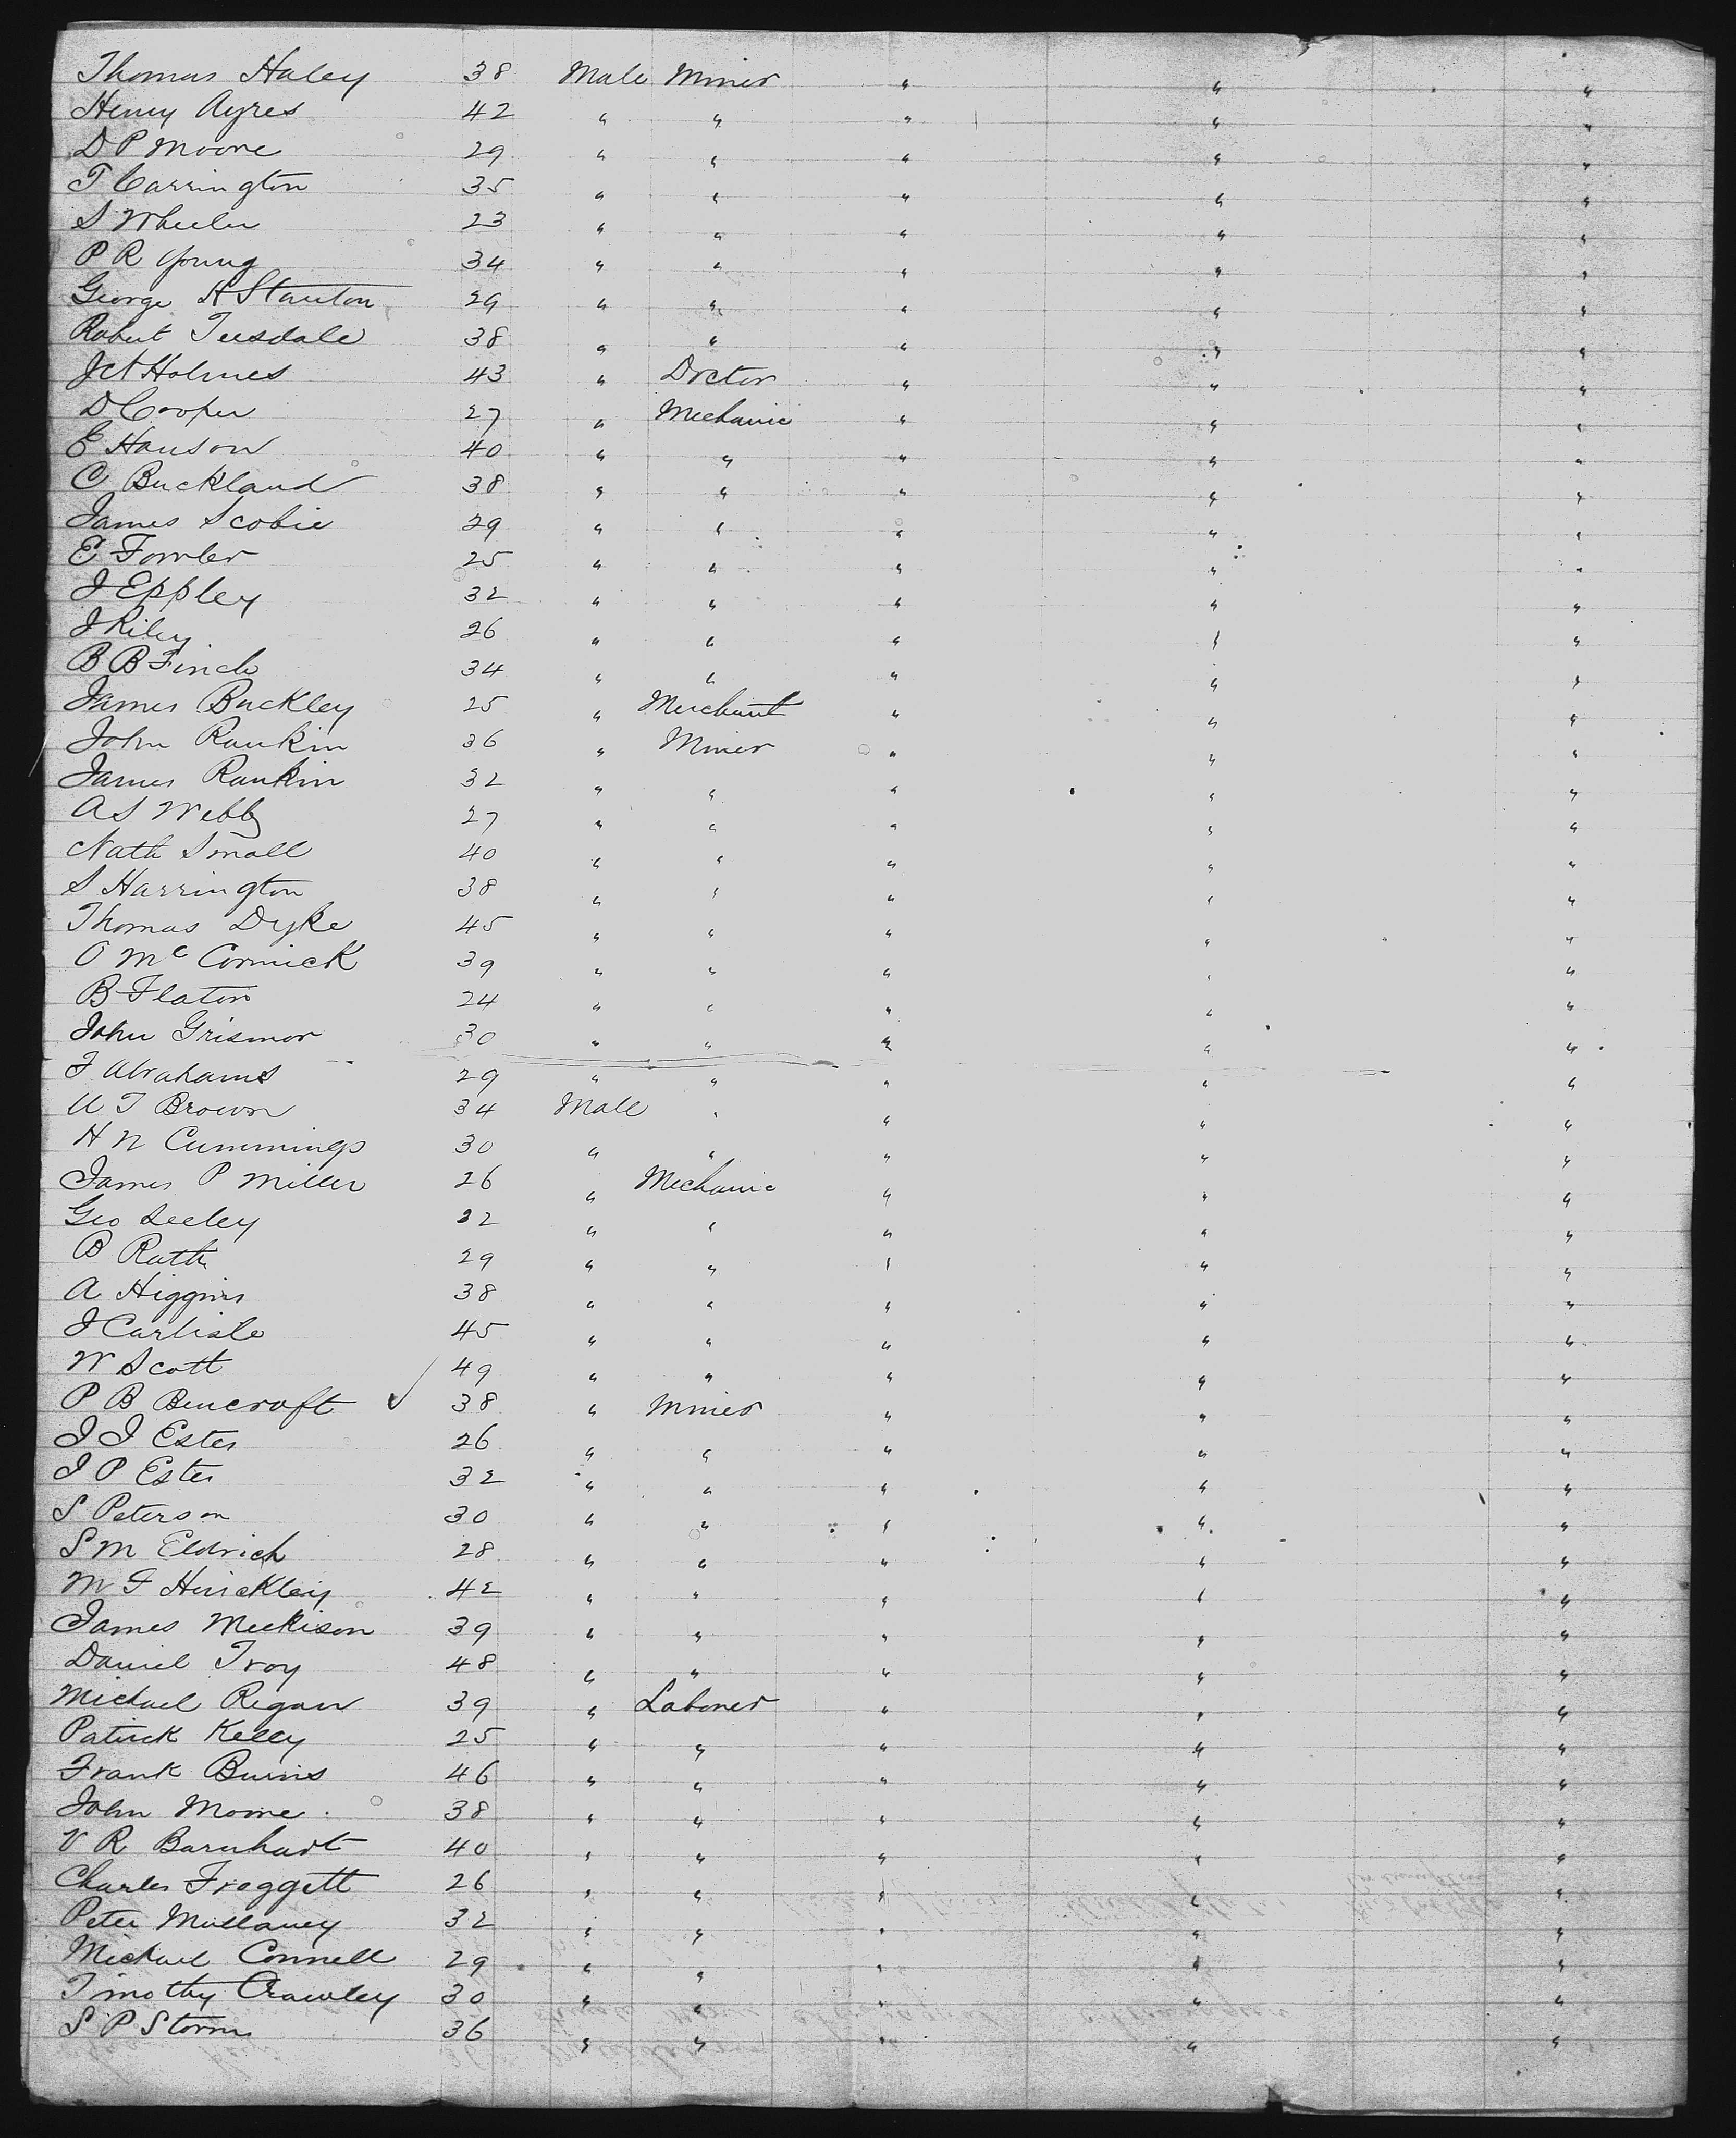 Thomas Haley 38 Male Miner " " "
Henry Ayres 42 " " " " "
D P Moore 29 " " " " "
T Carrington 35 " " " " "
S Wheeler 23 " " " " "
P R Young 34 " " " " "
George H Stanton 29 " " " " "
Robert Teesdale 38 " " " " "
J A Holmes 43 " Doctor " " "
D Cooper 27 " Mechanic " " "
E Hanson 40 " " " " "
C Buckland 38 " " " " "
James Scobie 29 " " " " "
E Fowler 25 " " " " "
J Eppley 32 " " " " "
J Riley 26 " " " " "
B B Finch 34 " " " " "
James Buckley 25 " Merchant " " "
John Rankin 36 " Miner " " "
James Rankin 32 " " " " "
A S Webb 27 " " " " "
Nath Small 40 " " " " "
S Harrington 38 " " " " "
Thomas Dyke 45 " " " " "
O McCormick 39 " " " " "
B Flaton 24 " " " " "
John Grismor 30 " " " " "
F Abrahams 29 " " " " "
U T Brown 34 Male " " " "
H N Cummings 30 " " " " "
James P Miller 26 " Mechanic " " "
Geo Seeley 32 " " " " "
B Rath 29 " " " " "
A Higgins 38 " " " " "
J Carlisle 45 " " " " "
W Scott 49 " " " " "
P B Bencroft ✓ 38 " Miner " " "
J J Estes 26 " " " " "
J P Estes 32 " " " " "
S Peterson 30 " " " " "
S M Eldrich 28 " " " " "
M F Hinckley 42 " " " " "
James Meekison 39 " " " " "
Daniel Troy 48 " " " " "
Michael Regan 39 " Laborer " " "
Patrick Kelly 25 " " " " "
Frank Burns 46 " " " " "
John Moore 38 " " " " "
V R Barnhart 40 " " " " "
Charles Froggett 26 " " " " "
Peter Mullaney 32 " " " " "
Michael Connell 29 " " " " "
Timothy Crawley 30 " " " " "
S P Storms 36 " " " " "